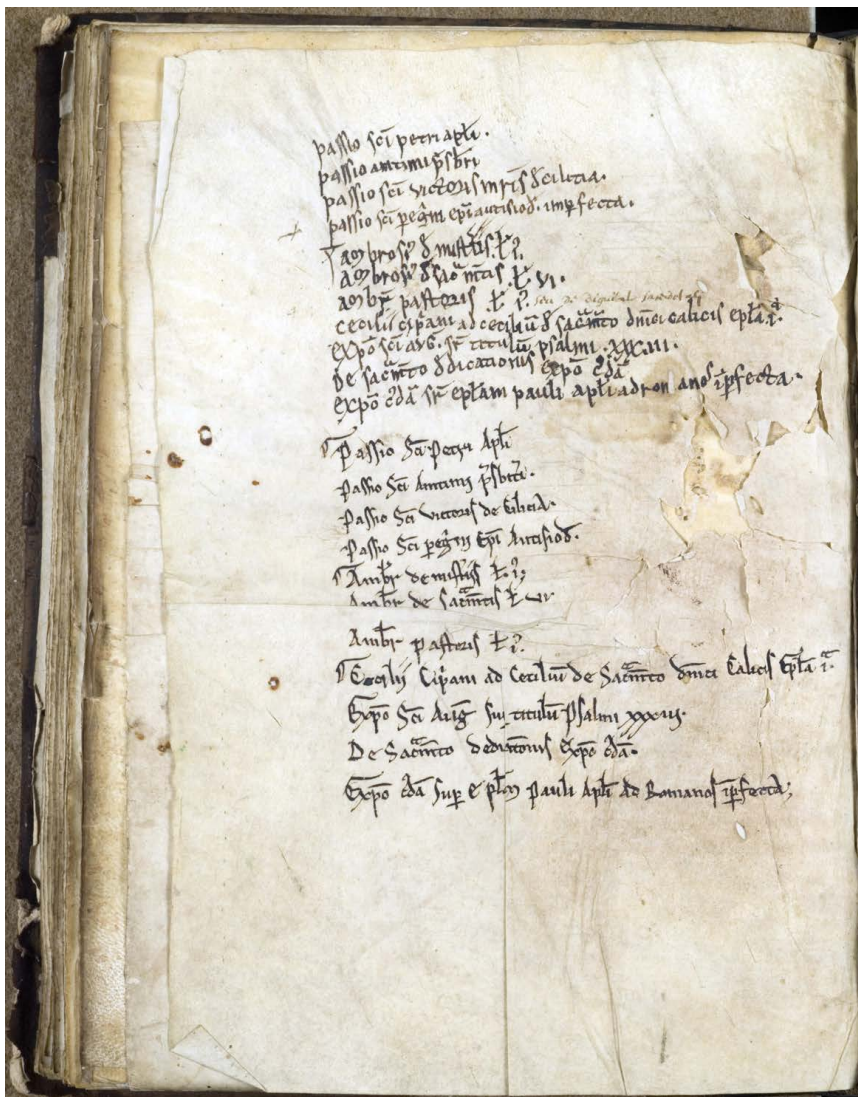 passio sc̄i petri apłi.
passio antimi p̄sbri
passio sc̄i victoris mr̄is đ cilicia.
passio sc̄i pegͥni epī autisiod̄. imp̄fecta.
ambrosꝰ đ misteͥis. ł. ī.
ambrosꝰ đ sacͣmtis ł. vi.
ambr̄ pastoris. ł. ī. seu de dignitat sacerdot
cecilii cipͥani ad ceciliū đ sacͣmto dn̄ici calicis epła .i.ͣ
expō sc̄i avḡ. sr̄ titulū psalmi. XXX.III.
de sacͣmto đdicationis expō qͥdā
expō qͥdā sr̄ epłam pauli apłi ad romanos īp̄fecta.
Passio Sc̄i Petri Apłi
Passio Sc̄i Antimi p̄sbitͥi.
Passio Sc̄i victoris de Cilicia.
Passio Sc̄i ꝑegͥni Epī Autisiod̄.
Ambr̄ de misteͥis ł. ī;
Ambr̄ de Sacͣmtis ł. vi
Ambr̄ pastoris ł. ī.
Cecilij Cipͥani ad Ceciliū de Sacͣmto dn̄ici Calicis Epła .i.ͣ
Expō Sc̄i Aug̅ Suꝑ titulū Psalmi xxxiij.
De Sacͣmto dedicac̄onis Expō qͥdā.
Expō qͥdā Suꝑ epłm Pauli Apłi Ad Romanos īꝑfecta;